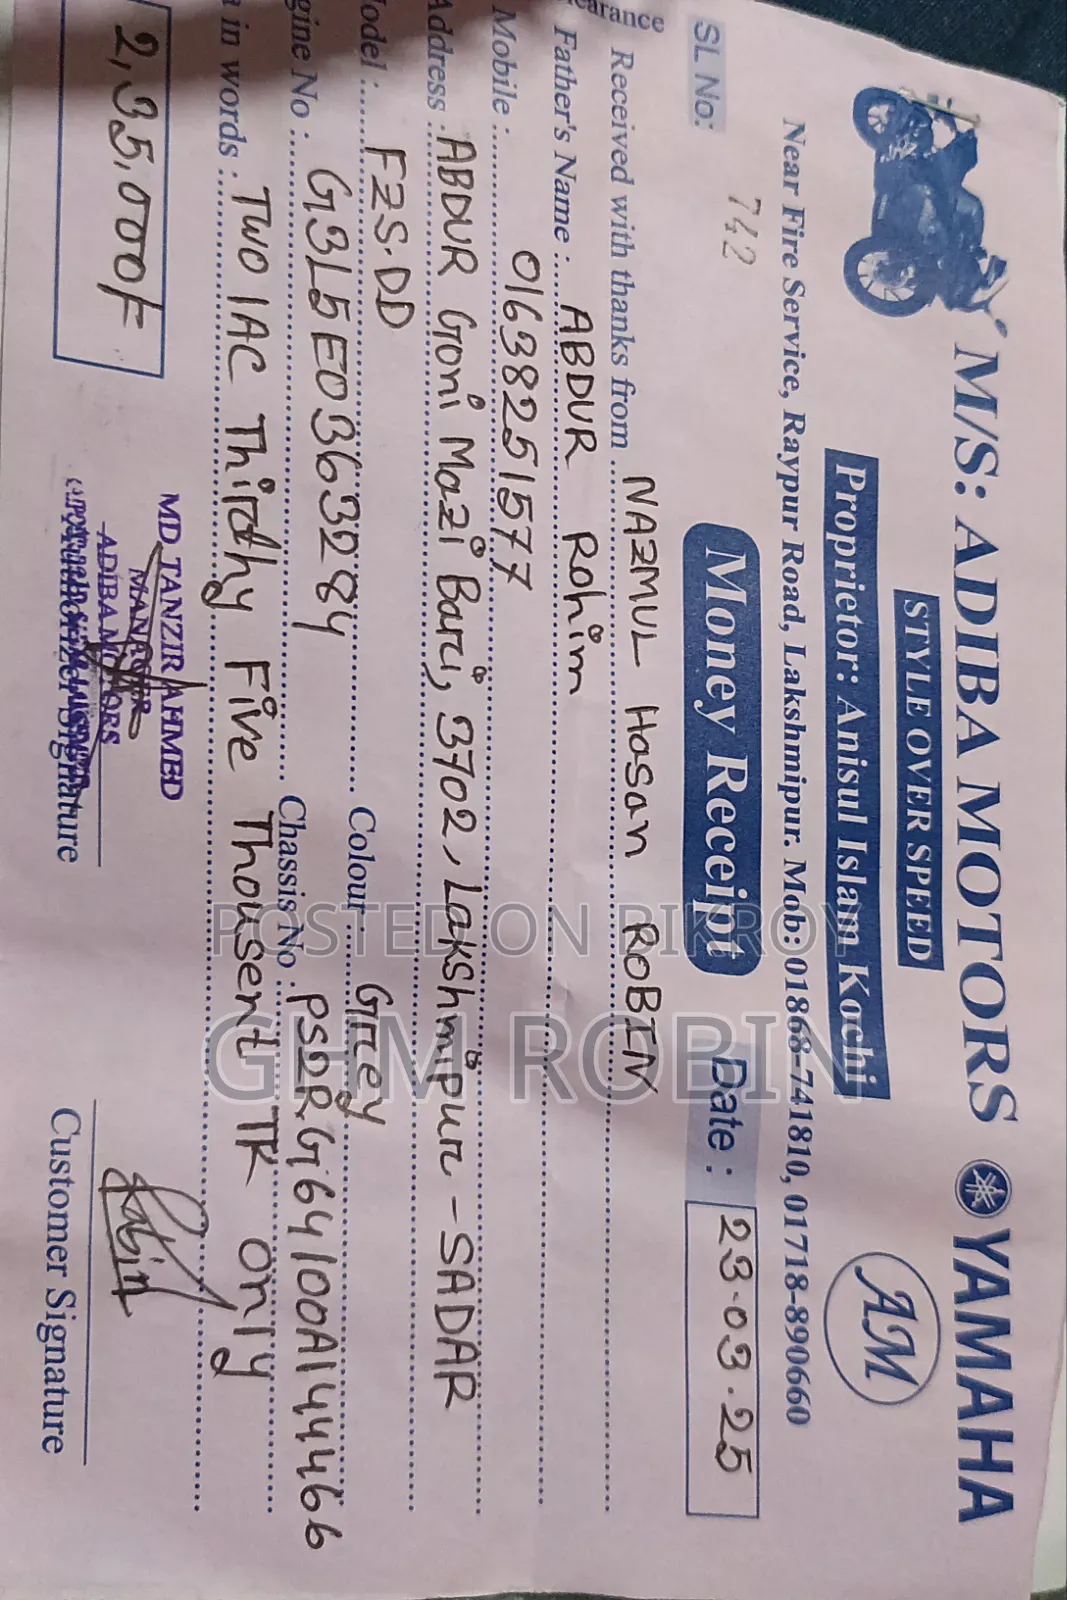 M/S: ADIBA MOTORS YAMAHA
STYLE OVER SPEED
Proprietor: Anisul Islam Kochi
AM
Near Fire Service, Raypur Road, Lakshmipur. Mob: 01868-741810, 01718-890660
SL No: 742 Money Receipt Date : 23.03.25
earance
Received with thanks from NAZMUL Hasan ROBIN
Father's Name : ABDUR Rohim
Mobile : 01638251577
Address ABDUR Goni Mazi Bari, 3702, Lakshmipur - SADAR
odel : FZS.DD Colour Grey
gine No : G3L5E0363284 Chassis No PS2RG64100A144466
in words : TWO lAC Thirthy Five Thousent TK only
2,35,000/=
MD TANZIR AHMED
MANAGER
ADIBA MOTORS
Authorized Signature
Robin
Customer Signature
POSTED ON BIKROY
GHM ROBIN